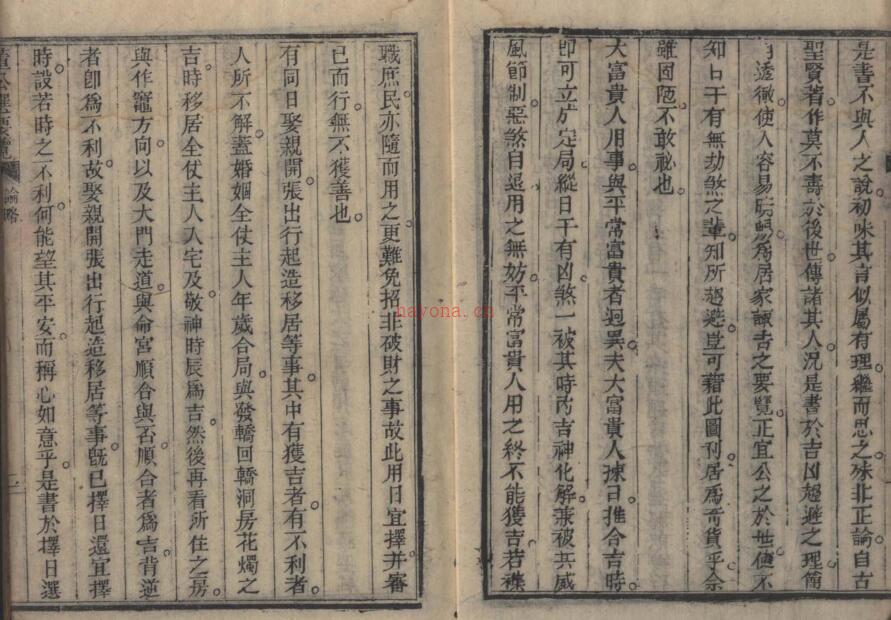 是書不與人之說。初味其言似屬有理。繼而思之。殊非正論。自古
聖賢著作莫不壽於後世。傳諸其人。况是書於吉凶趨避之理簡
透徹。使人容易明曉。爲居家諏吉之要覽。正宜公之於世。使不
知日干有無劫煞之輩。知所趨避。豈可藉此圖刊居爲奇貨乎。余
雖固陋。不敢祕也。
大富貴人用事。與平常富貴者迥異。夫大富貴人揀日。推合吉時。
即可立於定局。縱日干有凶煞。一被其時內吉神化解。兼被兵威
風節制。惡煞自退。用之無妨。平常富貴人用之。終不能獲吉。若襍
職庶民亦隨而用之。更難免招非破財之事。故此用日宜擇。并審
已而行。無不獲善也。
有同日娶親開張出行起造移居等事。其中有獲吉者。有不利者。
人所不解。蓋婚姻全仗主人年歲合局。與發轎回轎洞房花燭之
吉時。移居全仗主人入宅及敬神時辰爲吉。然後再看所住之房。
與作竈方向。以及大門走道。與命宮順合與否。順合者爲吉。背逆
者卽爲不利。故娶親開張出行起造移居等事。旣已擇日。還宜擇
時。設若時之不利。何能望其平安。而稱心如意乎。是書於擇日選
董公選要覽 論略 一
nayona.cn